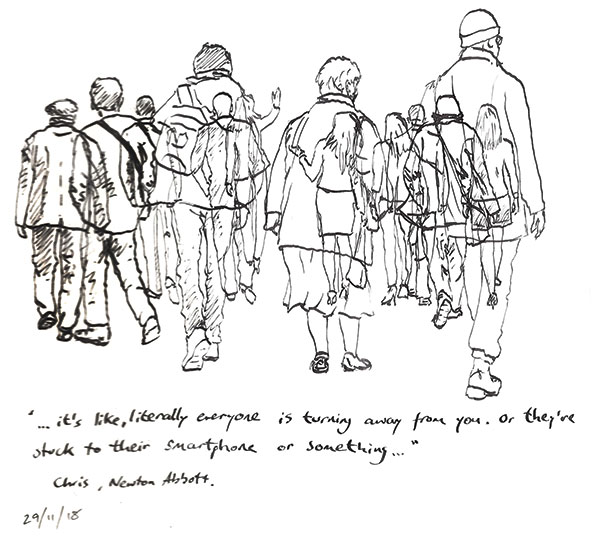 "... it's like, literally everyone is turning away from you. Or they're
stuck to their smartphone or something..."
Chris, Newton Abbott.
29/11/18